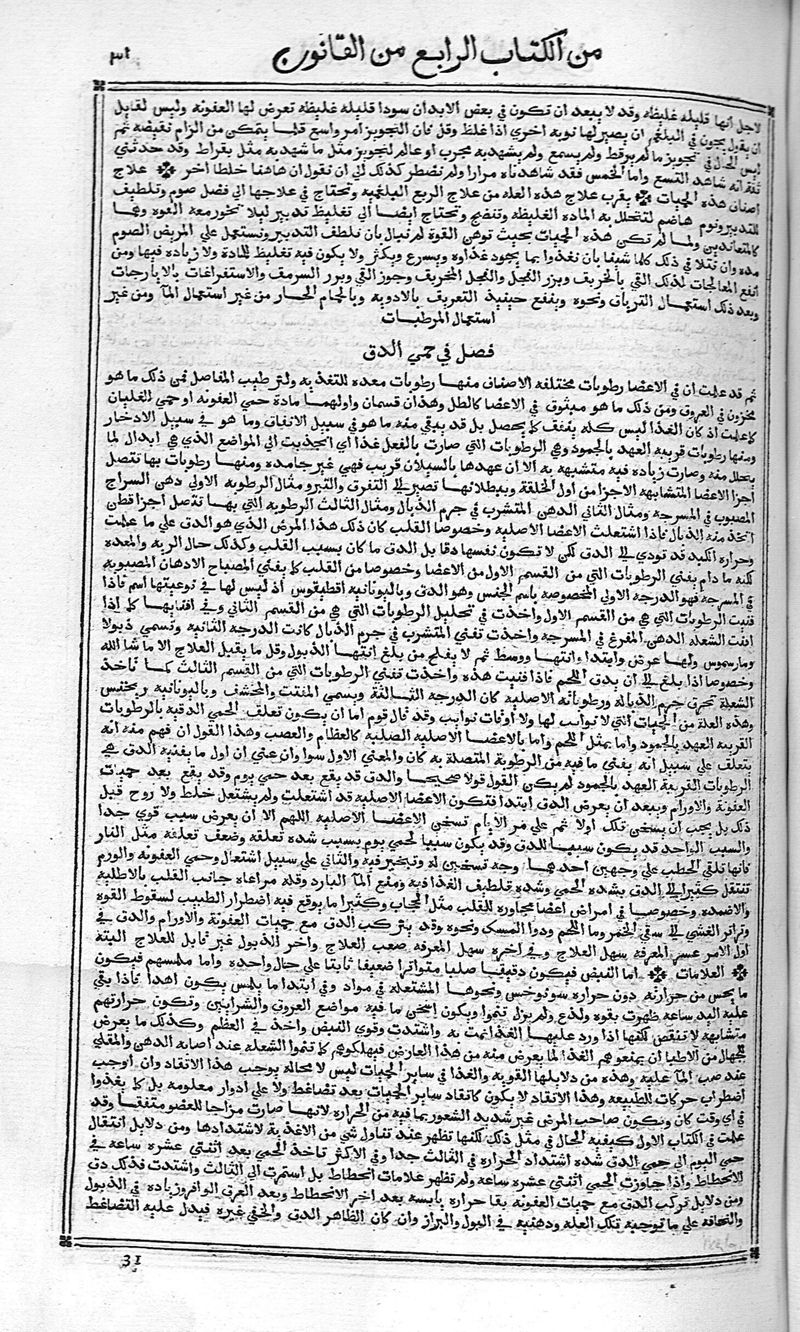 من الكتاب الرابع من القانون
٣١
لاجل انها قليله غليظه وقد لا يبعد ان تكون في بعض الابدان سودا قليله غليظه تعرض لها العفونه وليس لقايل
ان يقول يجوز في البلغم ان يصير لها نوبه اخري اذا غلظ وقل فان التجويز امر واسع قلما يتمكن من الزام نقيضه ثم
ليس الحال في تجويز ما لم يرقط ولم يسمع ولم يشهد به مجرب او عالم كتجويز مثل ما شهد به مثل بقراط وقد حدثني
ثقه انه شاهد التسع واما الخمس فقد شاهدناه مرارا ولم نضطر كذلك الي ان نقول ان هاهنا خلطا اخر علاج
اصناف هذه الحميات يقرب علاج هذه العله من علاج الربع البلغميه وتحتاج في علاجها الي فضل صوم وتلطيف
للتدبير ونوم هاضم لتتحلل به الماده الغليظه وتنضج وتحتاج ايضا الي تغليظ تدبير ليلا تخور معه القوه وهما
كالمتعاندين ولما لم تكن هذه الحميات بحيث توهن القوه لم نبال بان نلطف التدبير ونستعمل علي المريض الصوم
مده وان نتلافي ذلك كلما شينا بان نغذوا بما يجود غذاوه ويسرع ويكثر ولا يكون فيه تغليظ للماده ولا زياده فيها ومن
انفع المعالجات لذلك القي بالخربق وبزر الفجل والفجل المخربف وجوز القي وبزر السرمف والاستفراغات بالايارجات
وبعد ذلك استعمال الترياق ونحوه وينفع حينيذ التعريف بالادويه وبالحمام الحار من غير استعمال المآ ومن غير
استعمال المرطبات
فصل في حمي الدق
ثم قد علمت ان في الاعضا رطوبات مختلفه الاصناف منها رطوبات معده للتغذيه ولترطيب المفاصل فمن ذلك ما هو
مخزون في العروق ومن ذلك ما هو مبثوث في الاعضا كالطل وهذان قسمان واولهما مادة حمي العفونه او حمي الغليان
كما علمت اذ كان الغذا ليس كله ينفف كما يحصل بل قد يبقي منه ما هو في سبيل الانفاق وما هو في سبيل الادخار
ومنها رطوبات قريبه العهد بالجمود وهي الرطوبات التي صارت بالفعل غذا اي انجذبت الي المواضع الذي هي ابدال لما
يتحلل منه وصارت زياده فيه متشبهه به الا ان عهدها بالسيلان قريب فهي غير جامده ومنها رطوبات بها تتصل
اجزا الاعضا المتشابهه الاجزا من اول الخلقة وببطلانها تصير الي التفرق والتبرو ومثال الرطوبه الاولي دهن السراج
المصبوب في المسرجه ومثال الثاني الدهن المتشرب في جرم الذبال ومثال الثالث الرطوبه التي بها تتصل اجزا قطن
اتخذ منه الذبال فاذا اشتعلت الاعضا الاصليه وخصوصا القلب كان ذلك هذا المرض الذي هو الدق علي ما علمت
وحراره الكبد قد تودي الي الدق لكن لا تكون نفسها دقا بل الدق ما كان بسبب القلب وكذلك حال الريه والمعده
لكنه ما دام يفني الرطوبات التي من القسم الاول من الاعضا وخصوصا من القلب كما يفني المصباح الادهان المصبوبه
في المسرجه فهو الدرجه الاولي المخصوصه باسم الجنس وهو الدق وباليونانيه اقطيقوس اذ ليس لها في نوعيتها اسم فاذا
فنيت الرطوبات التي هي من القسم الاول واخذت في تحليل الرطوبات التي هي من القسم الثاني وفي افنايها كما اذا
افنت الشعله الدهن المفرغ في المسرجه واخذت تفني المتشرب في جرم الذبال كانت الدرجه الثانيه وتسمي ذبولا
ومارسموس ولها عرض وابتدا وانتها ووسط ثم لا يفلح من بلغ انتها الذبول وقل ما يقبل العلاج الا ما شا الله
وخصوصا اذا بلغ الي ان يدق اللحم فاذا فنيت هذه واخذت تفني الرطوبات التي من القسم الثالث كما تاخذ
الشعلة تحرق جرم الذباله ورطوباته الاصليه كان الدرجه الثالثة ويسمي المفتت والمحشف وباليونانيه
وهذه العلة من الحميات التي لا نوايب لها ولا اوقات نوايب وقد قال قوم اما ان يكون تعلف الحمي الدقيه بالرطوبات
القريبه العهد بالجمود واما بمثل اللحم واما بالاعضا الاصليه الصلبه كالعظام والعصب وهذا القول ان فهم منه انه
يتعلف علي سبيل انه يفني ما فيه من الرطوبة المتصلة به كان والمعني الاول سوا وان عني ان اول ما يفنيه الدق هي
الرطوبات القريبة العهد بالجمود لم يكن القول قولا صحيحا والدق قد يقع بعد حمي يوم وقد يقع بعد حميات
العفونة والاورام ويبعد ان يعرض الدق ابتدا فتكون الاعضا الاصليه قد اشتعلت ولم يشتعل خلط ولا روح قبل
ذلك بل يجب ان يسخن تلك اولا ثم علي مر الايام تسخن الاعضا الاصليه اللهم الا ان يعرض سبب قوي جدا
والسبب الواحد قد يكون سببا للدق وقد يكون سببا لحمي يوم بسبب شده تعلقه وضعف تعلقه مثل النار
فانها تلقي الحطب علي وجهين احدهما وجه تسخين له وتبخير فيه والثاني علي سبيل اشتعال وحمي العفونه والورم
تنتقل كثيرا الي الدق بشده الحمي وشده تلطيف الغذا فيه ومنع المآ البارد وقله مراعاه جانب القلب بالاطليه
والاضمده وخصوصا في امراض اعضا مجاوره للقلب مثل الحجاب وكثيرا ما يوقع فيه اضطرار الطبيب لسقوط القوه
وتواتر الغشي الي سقي الخمر وما اللحم ودوا المسك ونحوه وقد يتركب الدق مع حميات العفونة والاورام والدق في
اول الامر عسر المعرفه سهل العلاج وفي اخره سهل المعرفه صعب العلاج واخر الذبول غير قابل للعلاج البته
العلامات اما النبض فيكون دقيقا صلبا متواترا ضعيفا ثابتا علي حال واحده واما ملمسهم فيكون
ما يحس من حرارته دون حراره سونوخس ونحوها المشتعله في مواد وفي ابتدا ما يلمس يكون اهدا فاذا بقي
عليه اليد ساعه ظهرت بقوه ولذع ولم يزل تنموا ويكون اسخن ما فيه مواضع العروق والشرايين وتكون حرارتهم
متشابهه لا تنقص لكنها اذا ورد عليها الغذا نمت به واشتدت وقوي النبض واخذ في العظم وكذلك ما يعرض
لجهال من الاطبا ان يمنعوهم الغذا لما يعرض منه من هذا العارض فيهلكوهم كما تنموا الشعله عند اصابه الدهن والمقلي
عند صب المآ عليه وهذه من دلايلها القويه والغذا في ساير الحميات ليس لا محاله يوجب هذا الاتقاد وان اوجب
اضطراب حركات للطبيعه وهذا الاتقاد لا يكون كاتقاد ساير الحميات بعد تضاغط ولا علي ادوار معلومه بل كما يغذوا
في اي وقت كان ويكون صاحب المرض غير شديد الشعور بما فيه من الحراره لانها صارت مزاجا للعضو متفقا وقد
علمت في الكتاب الاول كيفيه الحال في مثل ذلك لكنها تظهر عند تناول شي من الاغذيه لاشتدادها ومن دلايل انتقال
حمي اليوم الي حمي الدق شده اشتداد الحراره في الثالث جدا وفي الاكثر تاخذ الحمي بعد اثنتي عشره ساعه في
الانحطاط واذا جاوزت الحمي اثنتي عشره ساعه ولم تظهر علامات انحطاط بل استمرت الي الثالث واشتدت فذلك دق
ومن دلايل تركب الدق مع حميات العفونة بقا حراره يابسه بعد اخر الانحطاط وبعد العرق الوافر وزياده في الذبول
والنحافه علي ما توجبه تلك العله ودهنيه في البول والبراز وان كان الظاهر الدق والخفي غيره فيدل عليه التضاغط
31